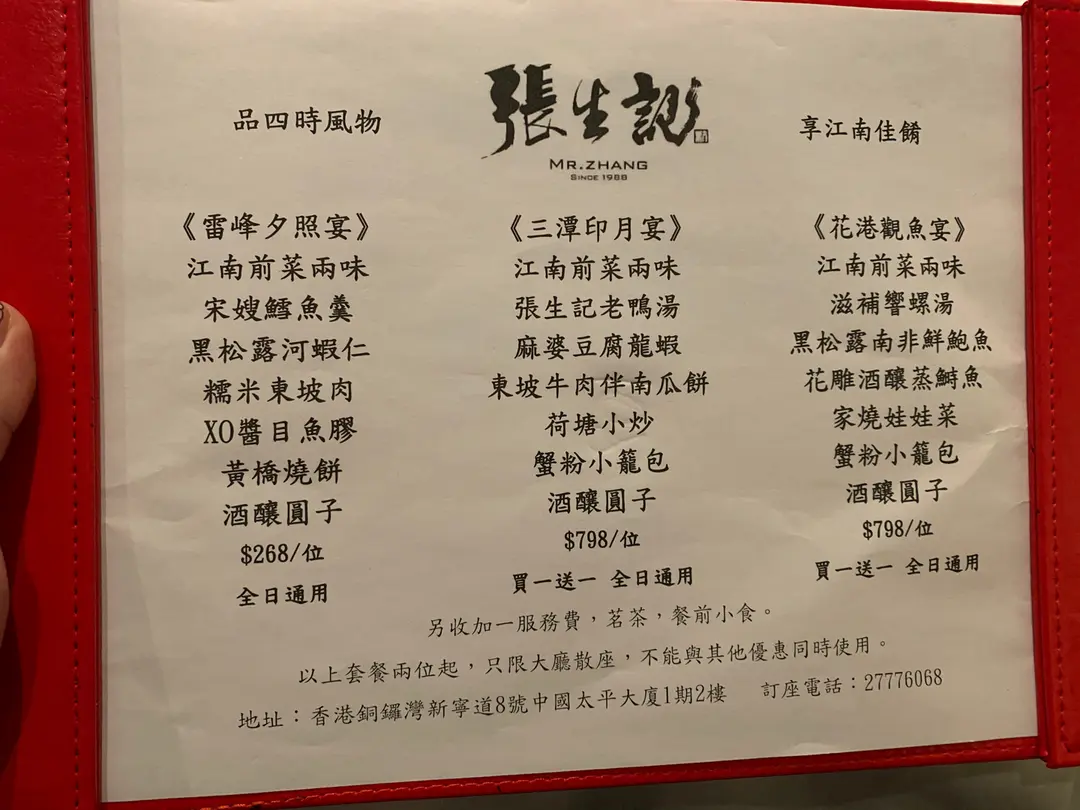 品四時風物
張生記
MR.ZHANG
SINCE 1988
享江南佳餚
《雷峰夕照宴》
江南前菜兩味
宋嫂鱈魚羹
黑松露河蝦仁
糯米東坡肉
XO醬目魚膠
黃橋燒餅
酒釀圓子
$268/位
全日通用
《三潭印月宴》
江南前菜兩味
張生記老鴨湯
麻婆豆腐龍蝦
東坡牛肉伴南瓜餅
荷塘小炒
蟹粉小籠包
酒釀圓子
$798/位
買一送一 全日通用
《花港觀魚宴》
江南前菜兩味
滋補響螺湯
黑松露南非鮮鮑魚
花雕酒釀蒸鰣魚
家燒娃娃菜
蟹粉小籠包
酒釀圓子
$798/位
買一送一 全日通用
另收加一服務費，茗茶，餐前小食。
以上套餐兩位起，只限大廳散座，不能與其他優惠同時使用。
地址：香港銅鑼灣新寧道8號中國太平大廈1期2樓 訂座電話：27776068